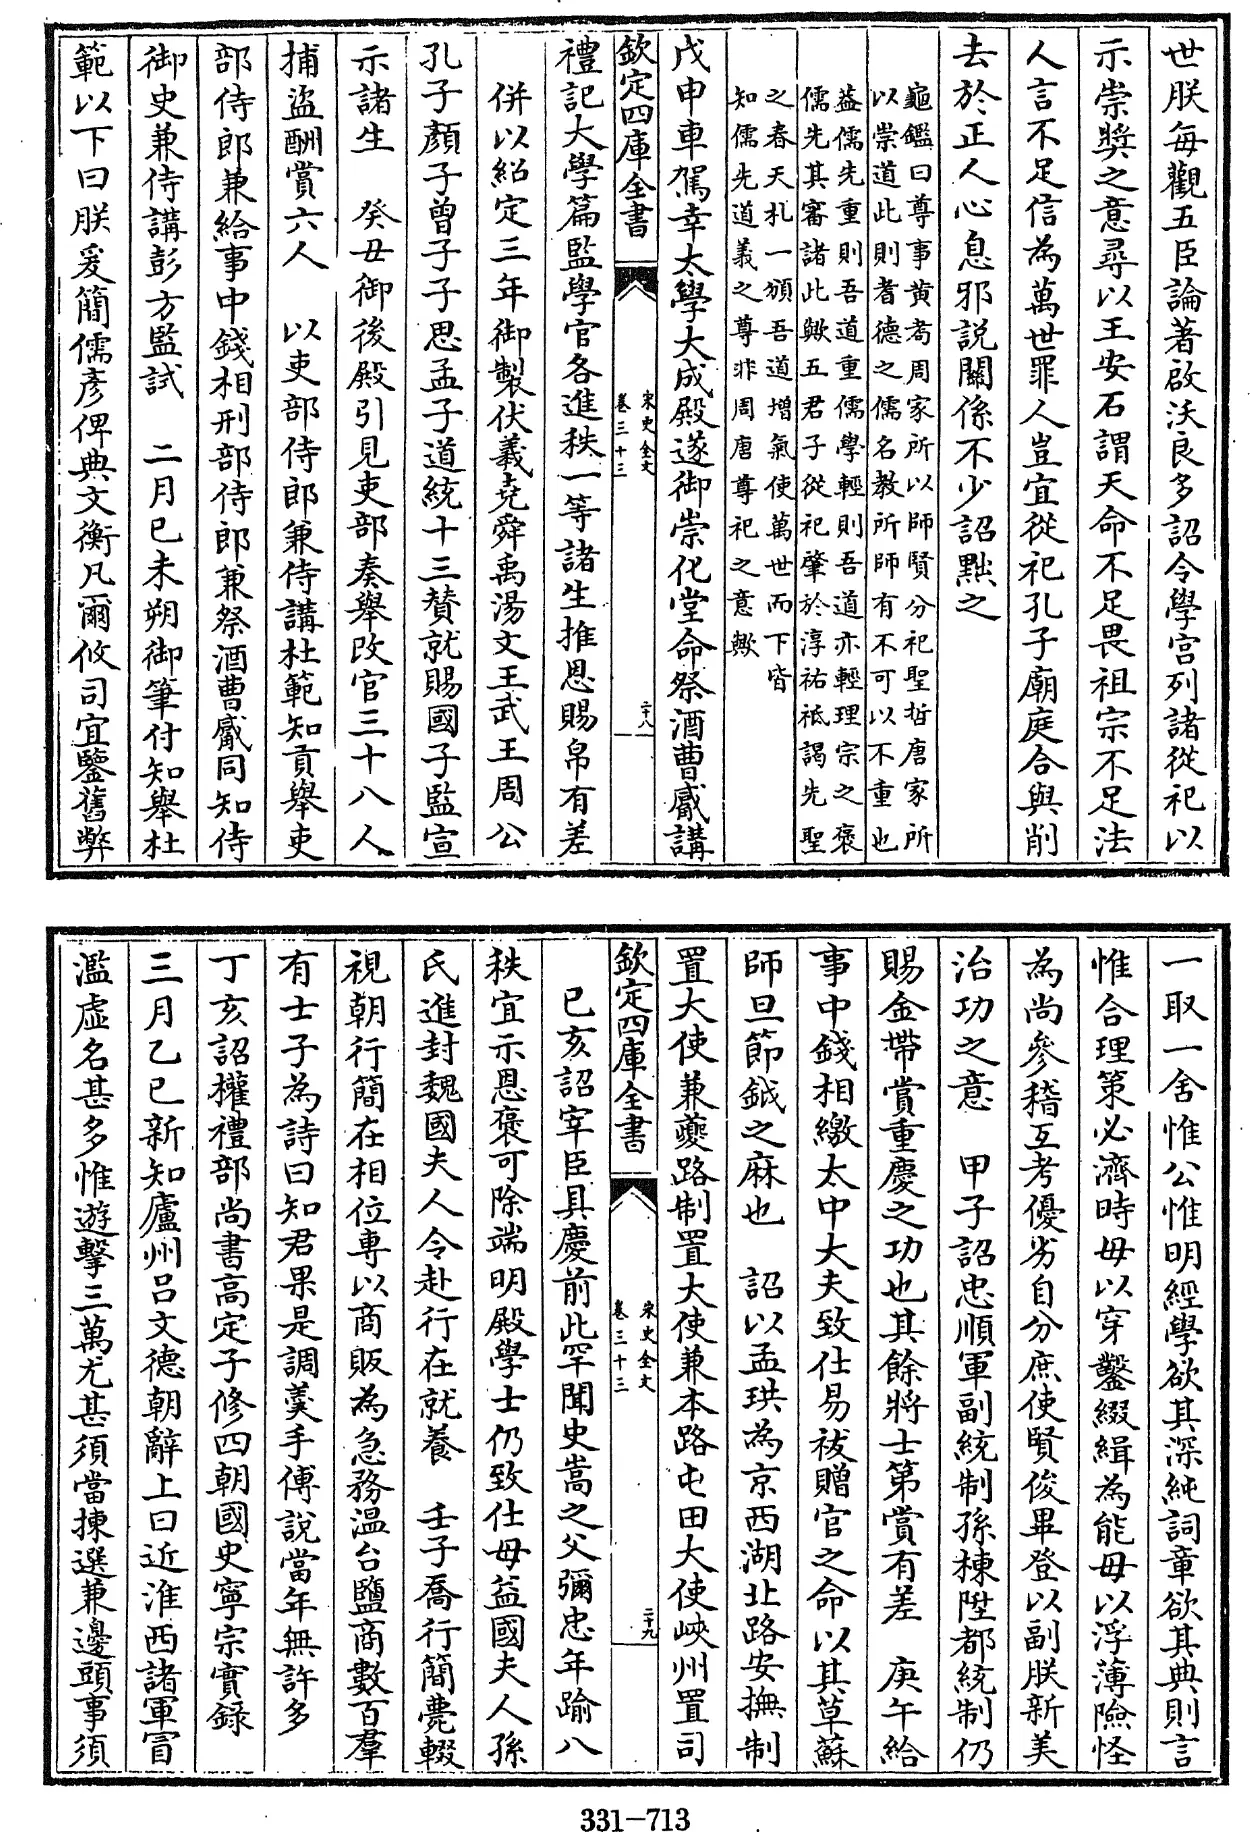 世朕每觀五臣論著啟沃良多詔令學宫列諸從祀以
示崇奬之意尋以王安石謂天命不足畏祖宗不足法
人言不足信為萬世罪人豈宜從祀孔子廟庭合與削
去於正人心息邪説闗係不少詔黜之
龜鑑曰尊事黄耇周家所以師賢分祀聖哲唐家所
以崇道此則耆德之儒名教所師有不可以不重也
葢儒先重則吾道重儒學輕則吾道亦輕理宗之褒
儒先其審諸此歟五君子從祀肇於淳祐祗謁先聖
之春天札一頒吾道增氣使萬世而下皆
知儒先道義之尊非周唐尊祀之意歟
戊申車駕幸太學大成殿遂御崇化堂命祭酒曹觱講
欽定四庫全書
宋史全文
卷三十三
二十八
禮記大學篇監學官各進秩一等諸生推恩賜帛有差
併以紹定三年御製伏羲堯舜禹湯文王武王周公
孔子顏子曾子子思孟子道統十三賛就賜國子監宣
示諸生　癸丑御後殿引見吏部奏舉改官三十八人
捕盜酬賞六人　以吏部侍郎兼侍講杜範知貢舉吏
部侍郎兼給事中錢相刑部侍郎兼祭酒曹觱同知侍
御史兼侍講彭方監試　二月己未朔御筆付知舉杜
範以下曰朕爰簡儒彥俾典文衡凡爾攸司宜鑒舊弊
一取一舍惟公惟明經學欲其深純詞章欲其典則言
惟合理策必濟時毋以穿鑿綴緝為能毋以浮薄險怪
為尚參稽互考優劣自分庶使賢俊畢登以副朕新美
治功之意　甲子詔忠順軍副統制孫棟陞都統制仍
賜金帶賞重慶之功也其餘將士第賞有差　庚午給
事中錢相繳太中大夫致仕易祓贈官之命以其草蘇
師旦節鉞之麻也　詔以孟珙為京西湖北路安撫制
置大使兼夔路制置大使兼本路屯田大使峽州置司
欽定四庫全書
宋史全文
卷三十三
二十九
己亥詔宰臣具慶前此罕聞史嵩之父彌忠年踰八
秩宜示恩褒可除端明殿學士仍致仕母益國夫人孫
氏進封魏國夫人令赴行在就養　壬子喬行簡薨輟
視朝行簡在相位專以商販為急務温台鹽商數百羣
有士子為詩曰知君果是調羹手傅說當年無許多
丁亥詔權禮部尚書高定子修四朝國史寧宗實錄
三月乙巳新知廬州吕文德朝辭上曰近淮西諸軍冒
濫虛名甚多惟遊擊三萬尤甚須當揀選兼邊頭事須
331-713